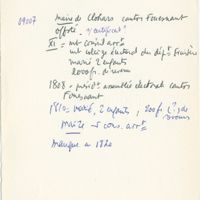 09007 maire de Clohars canton Fouesnant
offre
XI = mt conseil arrt
mt collège électoral du dépt Finistère
marié 2 enfants
2000 frs de revenu
1808 - présidt assemblée électorale canton
Fouesnant
1810 = marié, 2 enfants, 200 frs (?) de
revenus
maire + cons. arrt
manque en 1820